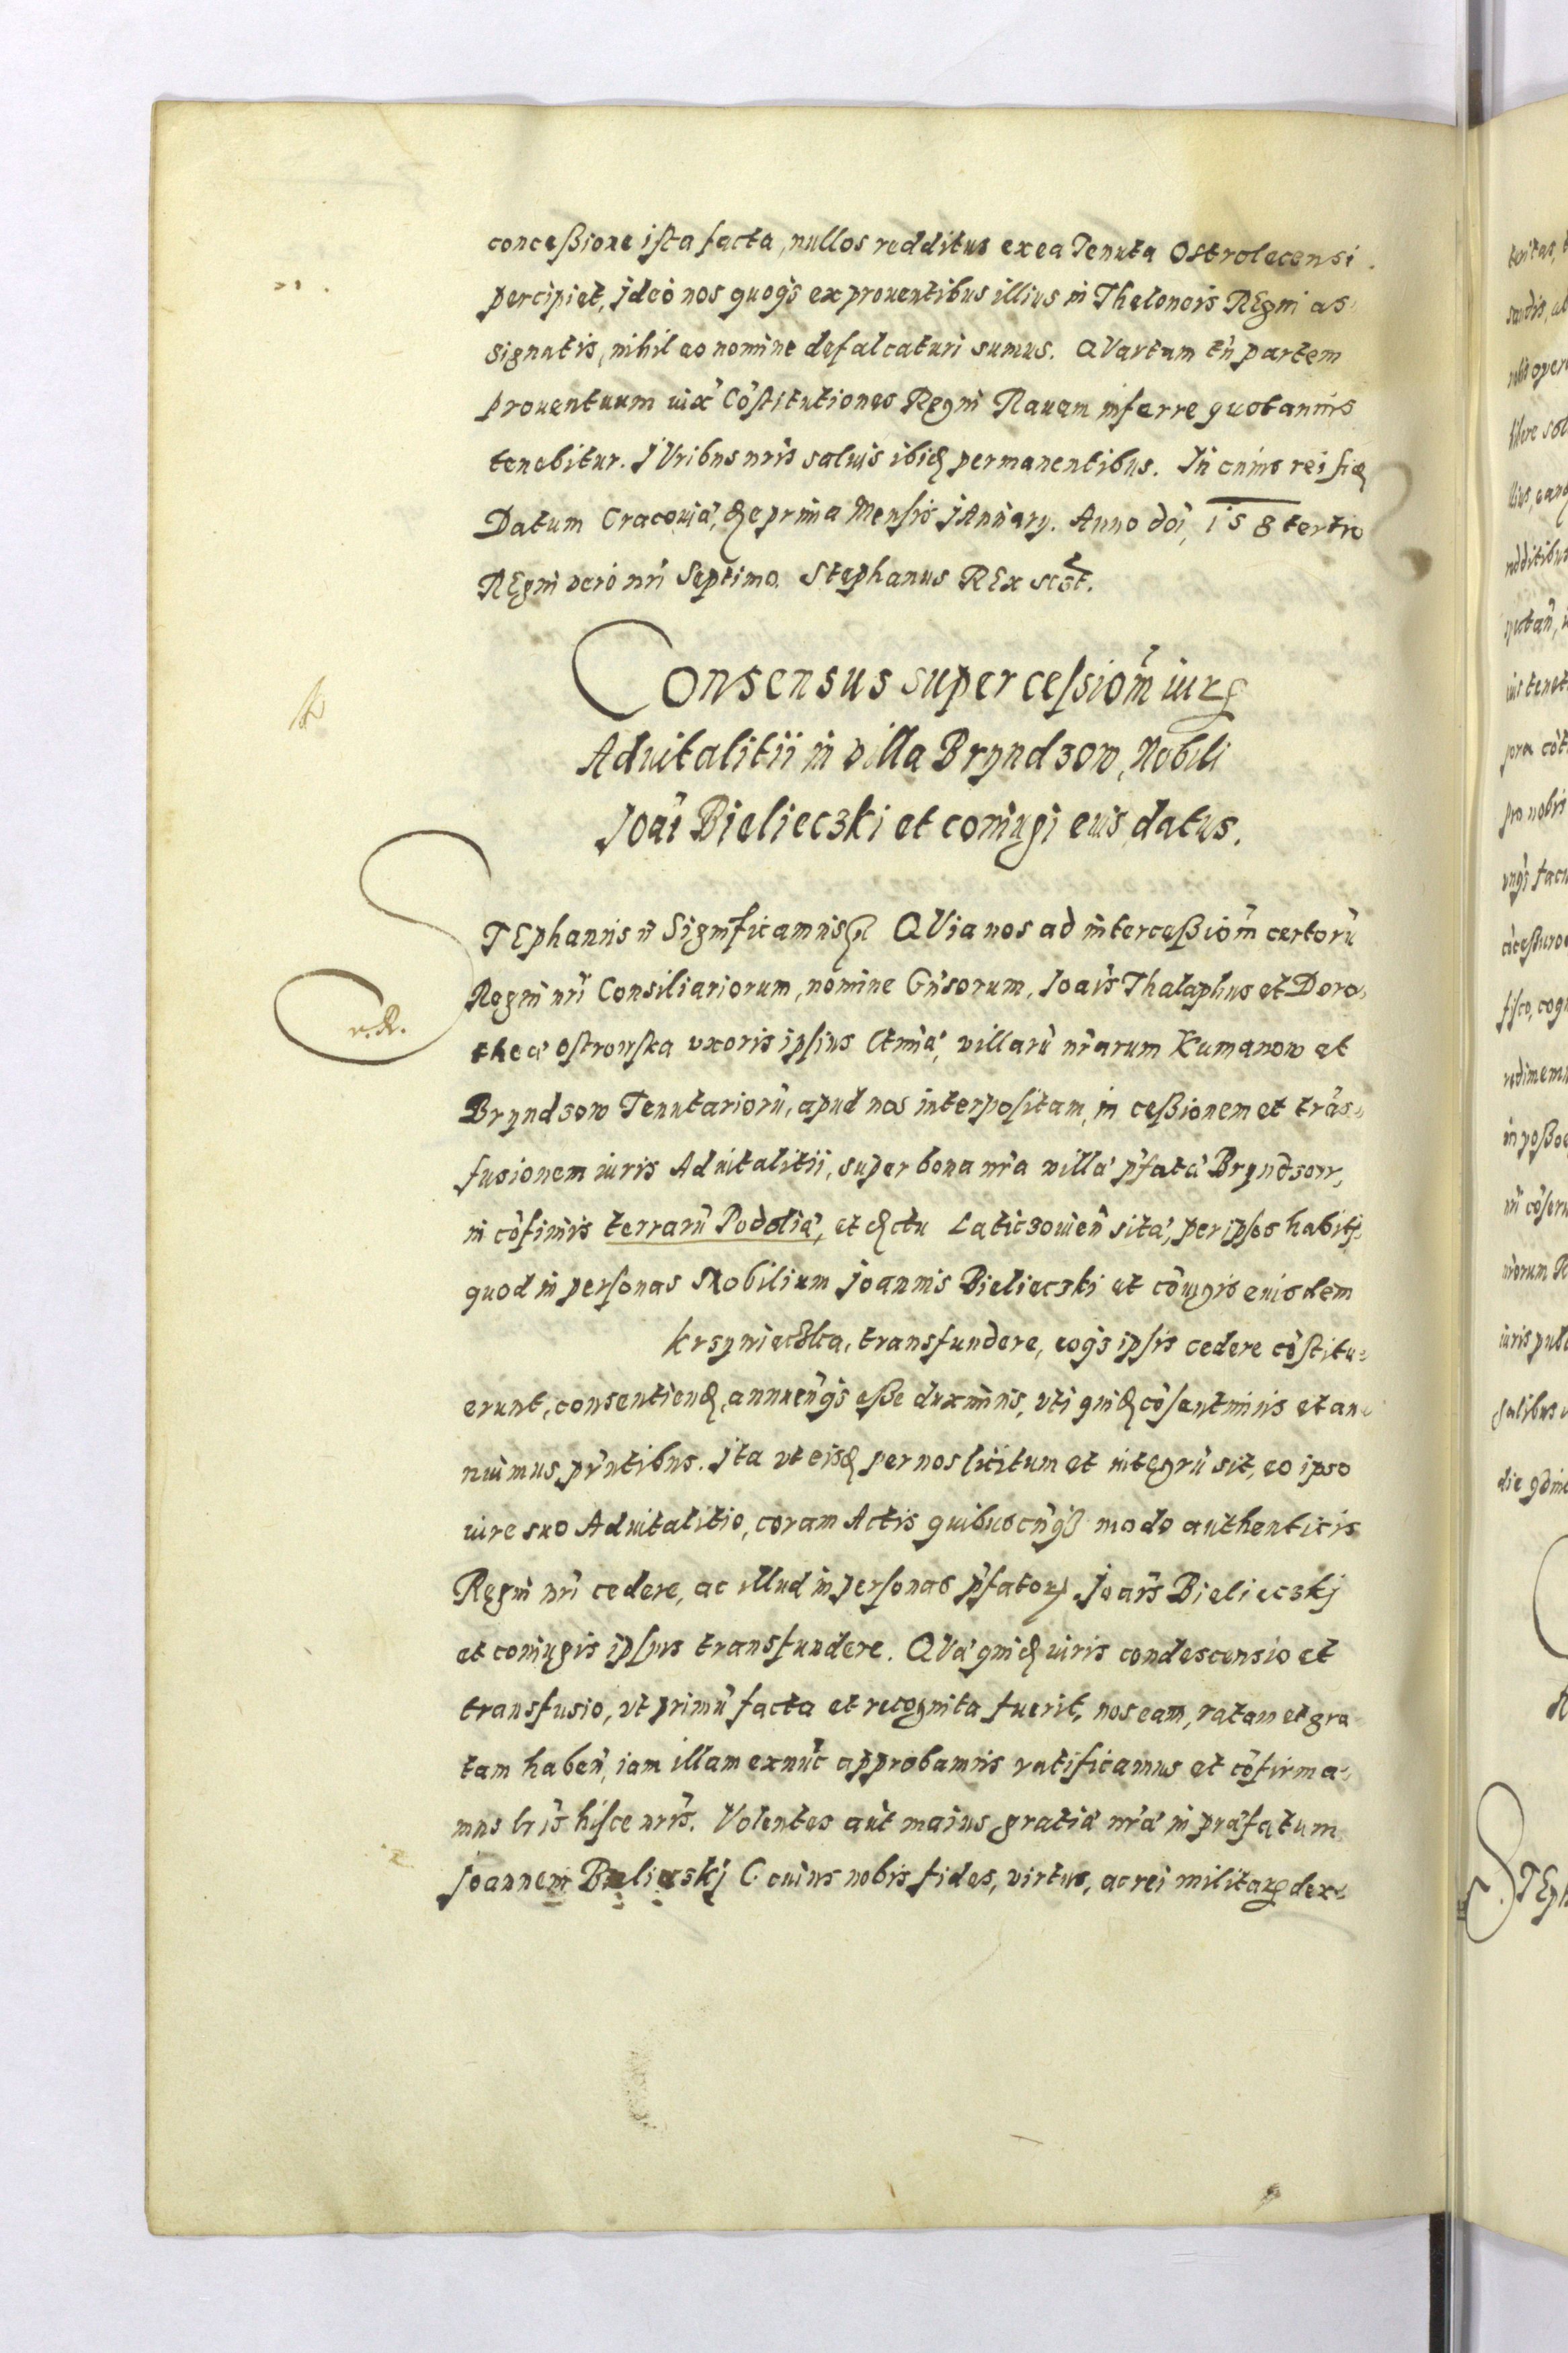 conceßione ista facta, nullos redditus ex ea Tenuta Ostrolecensi
percipiet, ideo nos quoqȝ ex prouentibus illius in Theloneis REgni as-
signatis, nihil eo nomine defalcaturi sumus. QVartam tn̄ partem
prouentuum iux̄ Cōstitutiones Regni Rauam inferre quotannis
tenebitur. IVribus nr̄is saluis ibid permanentibus. In cuius rei fid
Datum Cracouiæ, die prima Mensis JAnuarij. Anno doī, 158 tertio
REgni vero nr̄i Septimo. Stephanus REx scst.
Consensus super ceſsiom̄ iur
Aduitalitii in villa Bryndzow, Nobili
Joāi Bielieczki et coniugi eius datus.
STEphanus n̄ Significamus QVia nos ad interceßiom̄ certorū
Regni nr̄i Consiliariorum, nomine Gn̄sorum, Joāis Thalaphus et Doro-
theæ Ostrowska vxoris ipsius ltmæ, villarū nr̄arum Kumanow et
v. R.
Bryndzow Tenutariorū, apud nos interpositam, in ceßionem et trās-
fusionem iuris Aduitalitii, super bona nr̄a villæ p̄fatæ Bryndzow,
in cōfiniis terrarū Podoliæ, et dctu Laticzouien̄ sitæ, per ipsos habiti,
quod in personas Nobilium Joannis Bielieczki et cōiugis eiusdem
Krsynieczka, transfundere, eoqȝ ipsis cedere cōstitu-
erunt, consentiend, annuen̄qȝ eße duximus, vti quid cōsentimus et an-
nuimus pn̄tibus. Ita vt eisd per nos licitum et integrū sit, eo ipso
iure suo Aduitalitio, coram Actis quibuscūqȝ modo authenticis
Regni nr̄i cedere, ac illud in personas p̄fator Joāis Bielieczkj
et coniugis ipsius transfundere. QVæ quid iuris condescensio et
transfusio, vt primū facta et recognita fuerit, nos eam, ratam et gra-
tam haben̄, iam illam exnūc approbamus ratificamus et cōfirma-
mus lr̄is hisce nr̄is. Volentes aūt maius gratiæ nr̄æ in præfatum
Joannem Bielieskj C cuius nobis fides, virtus, ac rei militar dex-